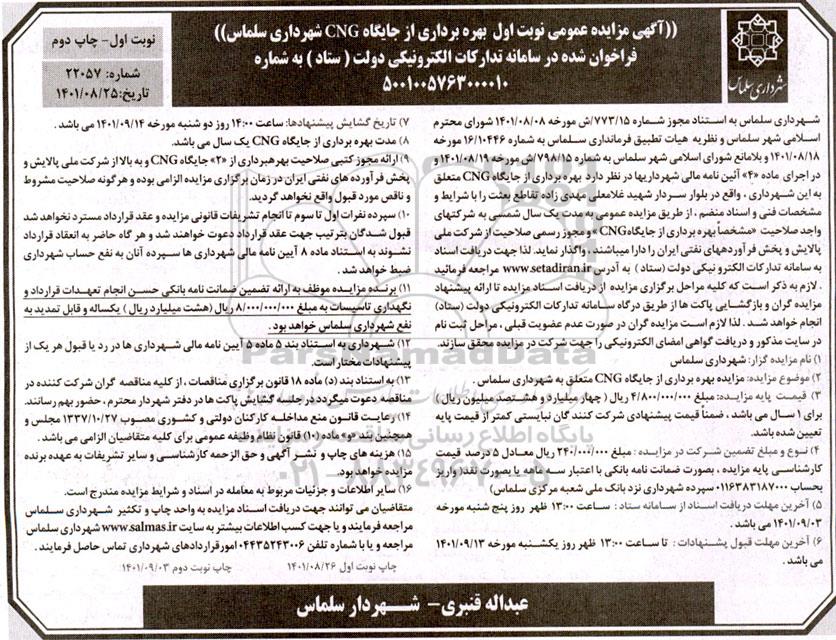 ((آگهی مزایده عمومی نوبت اول بهره برداری از جایگاه CNG شهرداری سلماس))
فراخوان شده در سامانه تدارکات الکترونیکی دولت ( ستاد ) به شماره
۵۰۰۱۰۰۵۷۶۳۰۰۰۰۱۰
شهرداری سلماس
نوبت اول- چاپ دوم
شماره: ۲۲۰۵۷
تاریخ: ۱۴۰۱/۰۸/۲۵
شهرداری سلماس به استناد مجوز شماره ۷۷۳/۱۵/ش مورخه ۱۴۰۱/۰۸/۰۸ شورای محترم
اسلامی شهر سلماس و نظریه هیات تطبیق فرمانداری سلماس به شماره ۱۶/۱۰۴۴۶ مورخه
۱۴۰۱/۰۸/۱۸ و بلامانع شورای اسلامی شهر سلماس به شماره ۷۹۸/۱۵/ش مورخه ۱۴۰۱/۰۸/۱۹ و
در اجرای ماده «۴» آئین نامه مالی شهرداریها در نظر دارد بهره برداری از جایگاه CNG متعلق
به این شهرداری ، واقع در بلوار سردار شهید غلامعلی مهدی زاده تقاطع بعثت را با شرایط و
مشخصات فنی و اسناد منضم ، از طریق مزایده عمومی به مدت یک سال شمسی به شرکتهای
واجد صلاحیت «مشخصاً بهره برداری از جایگاه CNG» و مجوز رسمی صلاحیت از شرکت ملی
پالایش و پخش فرآوردههای نفتی ایران را دارا میباشند، واگذار نماید. لذا جهت دریافت اسناد
به سامانه تدارکات الکترو نیکی دولت (ستاد ) به آدرس www.setadiran.ir مراجعه فرمائید
. لازم به ذکر است که کلیه مراحل برگزاری مزایده از دریافت اسناد مزایده تا ارائه پیشنهاد
مزایده گران و بازگشایی پاکت ها از طریق درگاه سامانه تدارکات الکترونیکی دولت (ستاد)
انجام خواهد شد . لذا لازم است مزایده گران در صورت عدم عضویت قبلی ، مراحل ثبت نام
در سایت مذکور و دریافت گواهی امضای الکترونیکی را جهت شرکت در مزایده محقق سازند.
۱) نام مزایده گزار: شهرداری سلماس
۲) موضوع مزایده: مزایده بهره برداری از جایگاه CNG متعلق به شهرداری سلماس
۳) قیمت پایه مزایده: مبلغ ۴/۸۰۰/۰۰۰/۰۰۰ ریال ( چهار میلیارد و هشتصد میلیون ریال )
برای ۱ سال می باشد ، ضمناً قیمت پیشنهادی شرکت کنند گان نبایستی کمتر از قیمت پایه
تعیین شده باشد.
۴) نوع و مبلغ تضمین شرکت در مزایده : مبلغ ۲۴۰/۰۰۰/۰۰۰ ریال معادل ۵ درصد قیمت
کارشناسی پایه مزایده ، بصورت ضمانت نامه بانکی با اعتبار سه ماهه یا بصورت نقد( واریز
بحساب ۰۱۱۶۳۸۳۱۸۷۰۰۰ سپرده شهرداری نزد بانک ملی شعبه مرکزی سلماس)
۵) آخرین مهلت دریافت اسناد از سامانه ستاد : ساعت ۱۳:۰۰ ظهر روز پنج شنبه مورخه
۱۴۰۱/۰۹/۰۳ می باشد .
۶) آخرین مهلت قبول پشنهادات : تا ساعت ۱۳:۰۰ ظهر روز یکشنبه مورخه ۱۴۰۱/۰۹/۱۳
می باشد .
۷) تاریخ گشایش پیشنهادها: ساعت ۱۴:۰۰ روز دو شنبه مورخه ۱۴۰۱/۰۹/۱۴ می باشد .
۸) مدت بهره برداری از جایگاه CNG یک سال می باشد.
۹) ارائه مجوز کتبی صلاحیت بهره‌برداری از «۲» جایگاه CNG و به بالا از شرکت ملی پالایش و
پخش فرآورده های نفتی ایران در زمان برگزاری مزایده الزامی بوده و هرگونه صلاحیت مشروط
و ناقص مورد قبول واقع نخواهد گردید.
۱۰) سپرده نفرات اول تا سوم تا انجام تشریفات قانونی مزایده و عقد قرارداد مسترد نخواهد شد
قبول شدگان بترتیب جهت عقد قرارداد دعوت خواهند شد و هر گاه حاضر به انعقاد قرارداد
نشوند به استناد ماده ۸ آیین نامه مالی شهرداری ها سپرده آنان به نفع حساب شهرداری
ضبط خواهد شد .
۱۱) برنده مزایده موظف به ارائه تضمین ضمانت نامه بانکی حسن انجام تعهدات قرارداد و
نگهداری تاسیسات به مبلغ ۸/۰۰۰/۰۰۰/۰۰۰ ریال (هشت میلیارد ریال ) یکساله و قابل تمدید به
نفع شهرداری سلماس خواهد بود .
۱۲) شهرداری به استناد بند ۵ ماده ۵ آیین نامه مالی شهرداری ها در رد یا قبول هر یک از
پیشنهادات مختار است.
۱۳) به استناد بند (د) ماده ۱۸ قانون برگزاری مناقصات ، از کلیه مناقصه گران شرکت کننده در
مناقصه دعوت میگردد در جلسه گشایش پاکت ها در دفتر شهردار محترم ، حضور بهم رسانند.
۱۴) رعایت قانون منع مداخله کارکنان دولتی و کشوری مصوب ۱۳۳۷/۱۰/۲۷ مجلس و
همچنین بند «و» ماده (۱۰) قانون نظام وظیفه عمومی برای کلیه متقاضیان الزامی می باشد .
۱۵) هزینه های چاپ و نشر آگهی و حق الزحمه کارشناسی و سایر تشریفات به عهده برنده
مزایده خواهد بود.
۱۶) سایر اطلاعات و جزئیات مربوط به معامله در اسناد و شرایط مزایده مندرج است.
متقاضیان می توانند جهت دریافت اسناد مزایده به واحد چاپ و تکثیر شهرداری سلماس
مراجعه فرمایند و یا جهت کسب اطلاعات بیشتر به سایت www.salmas.ir شهرداری سلماس
مراجعه و یا با شماره تلفن ۰۴۴۳۵۲۴۳۰۰۶ امور قراردادهای شهرداری تماس حاصل فرمایند .
چاپ نوبت اول ۱۴۰۱/۰۸/۲۶ چاپ نوبت دوم ۱۴۰۱/۰۹/۰۳
عبداله قنبری- شهردار سلماس
ParsNamadData
پایگاه اطلاع رسانی مناقصه و مزایده